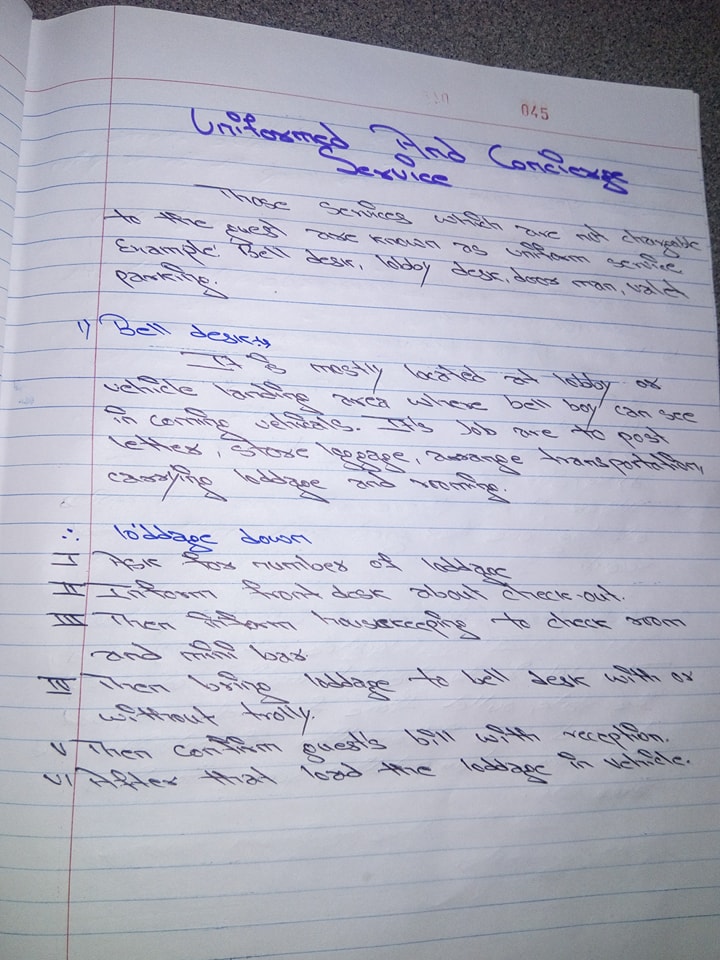 045
Uniformed And Concierge
Service
Those services which are not chargable
to the guest are known as uniform service
Example Bell desk, lobby desk, door man, valet
parking.
1) Bell desk:→
It is mostly located at lobby or
vehicle landing area where bell boy can see
in coming vehicals. It's Job are to post
letter, store loggage, arrange transportation,
carrying loddage and rooming.
∴ loddage down
I Ask for number of loddage
II Inform front desk about check-out.
III Then inform housekeeping to check room
and mini bar
IV Then bring loddage to bell desk with or
without trolly.
V Then confirm guest's bill with reception.
VI After that load the loddage in vehicle.